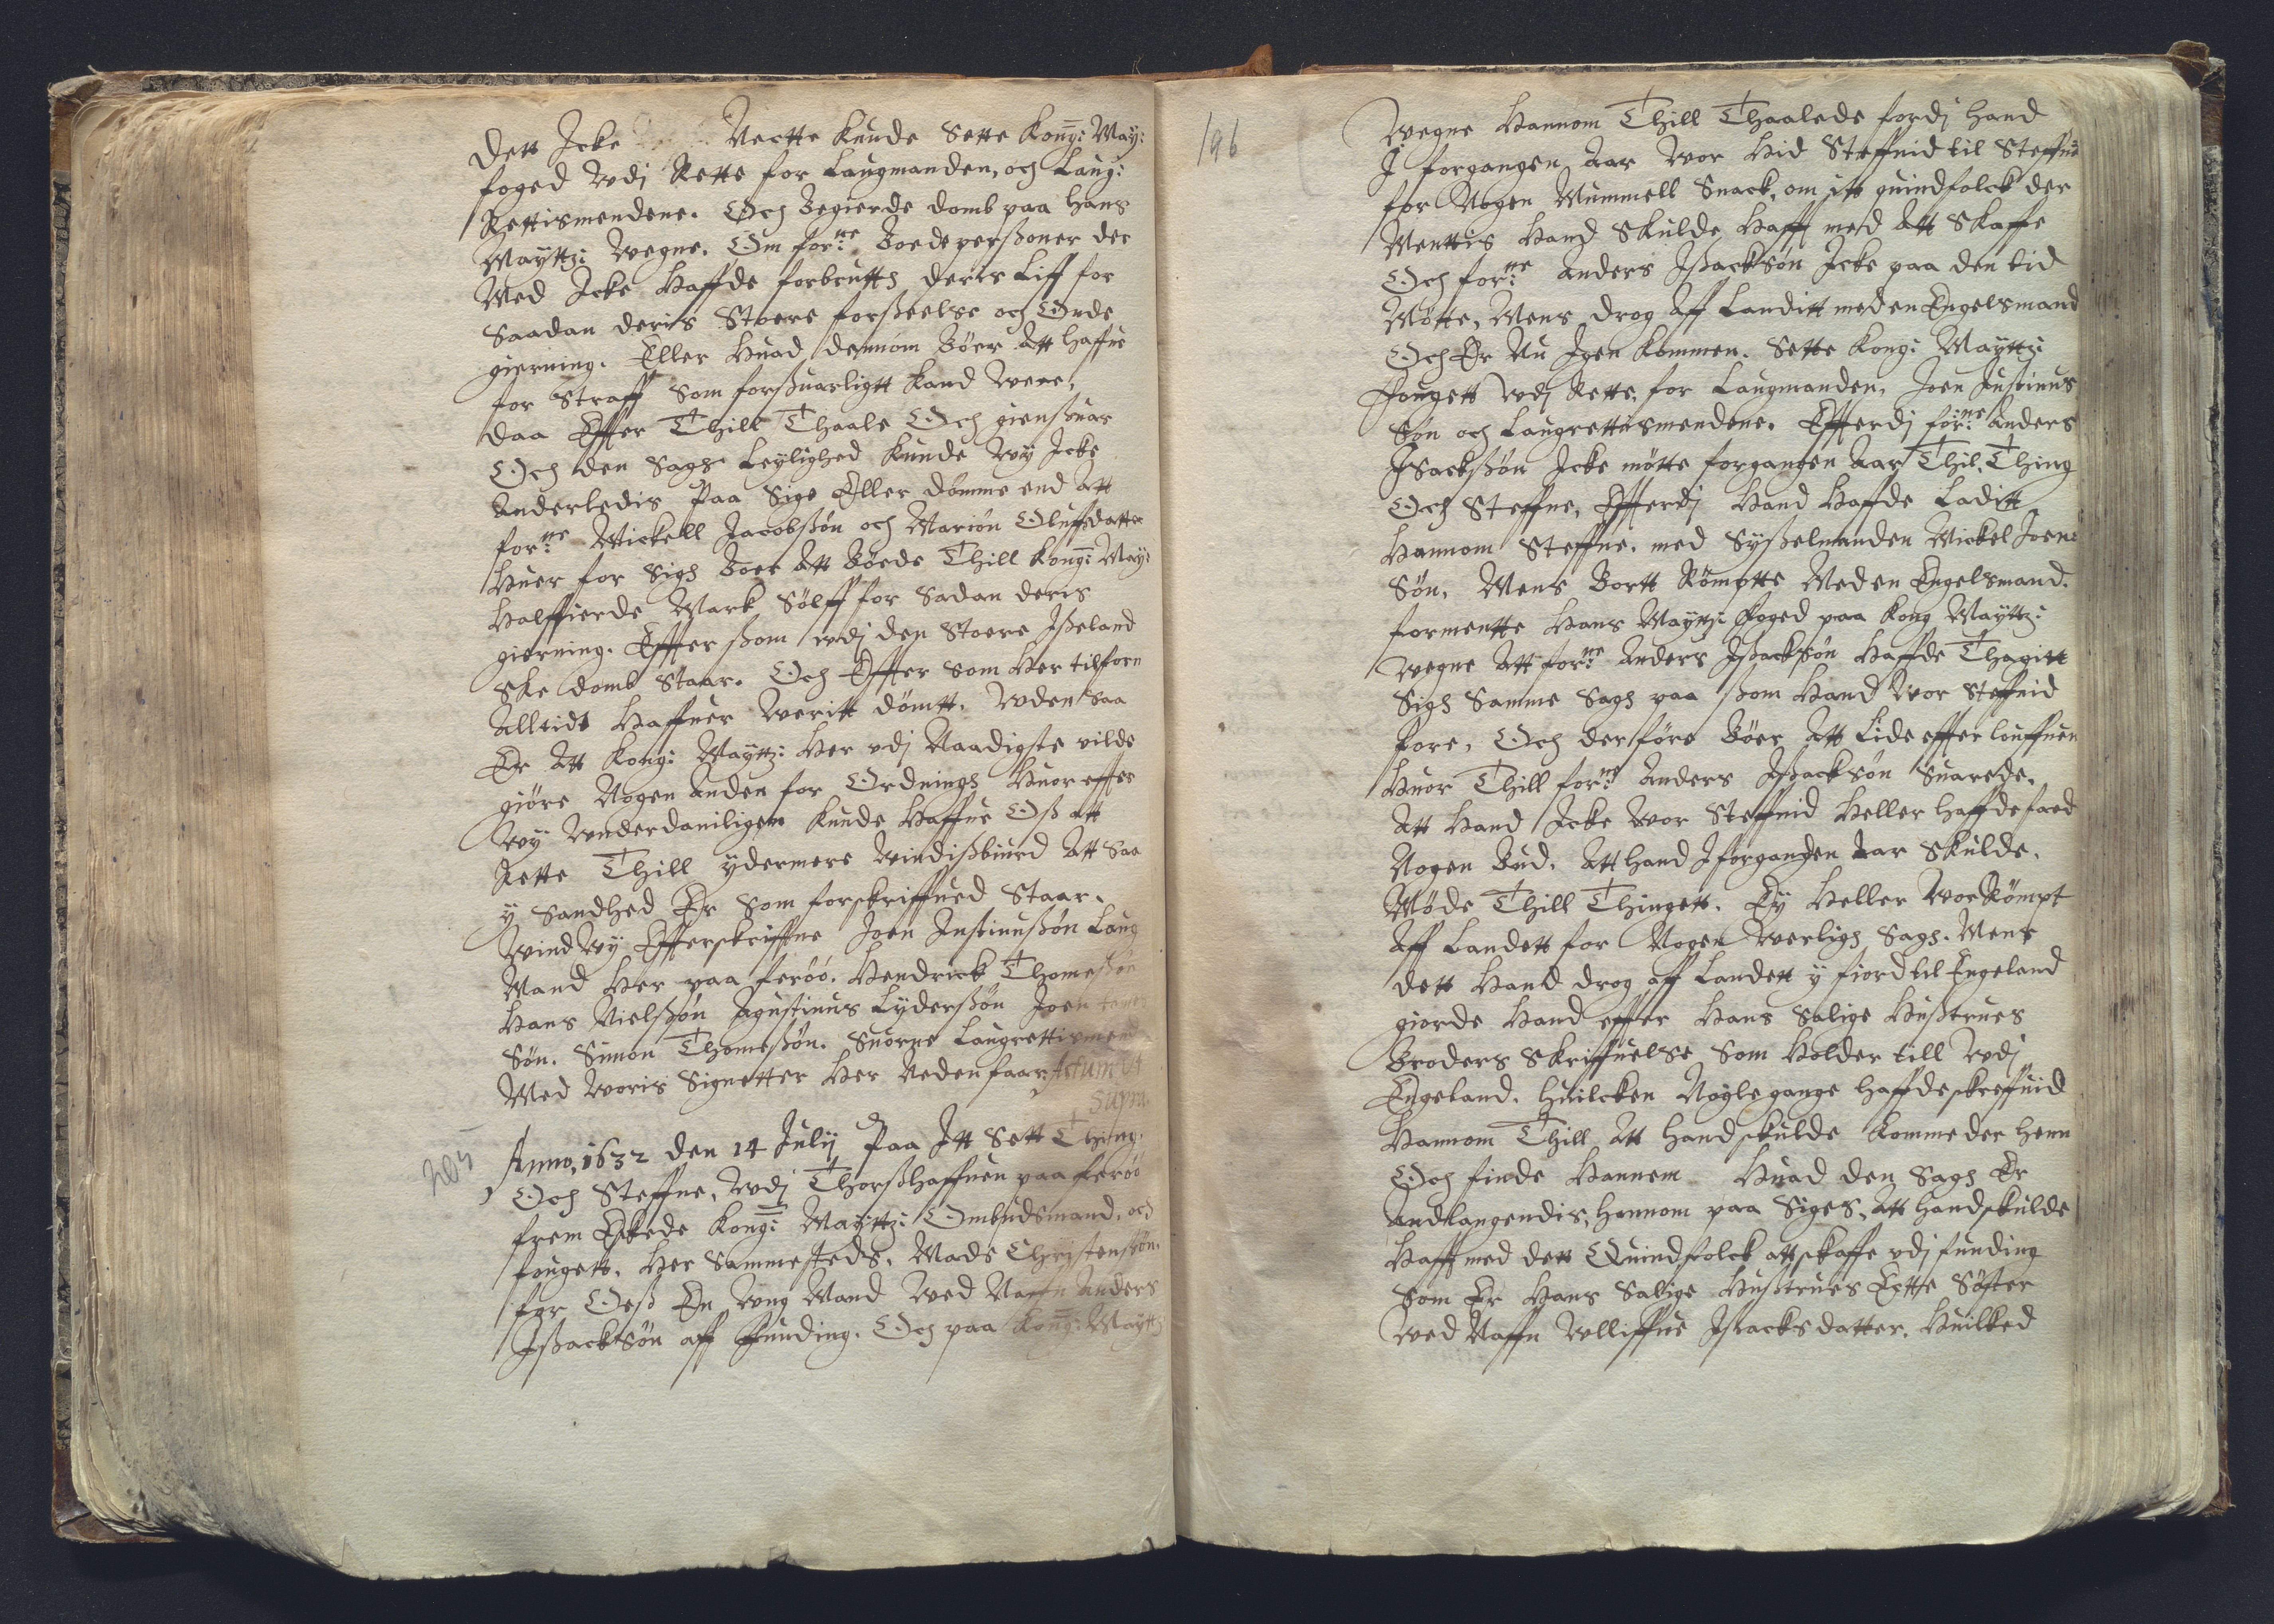 dett Icke Nectte kunde Sette Kong: May:
foged wdj Rette for Laugmanden, och Laug:
Rettismendene. Och Begierde domb paa Hans
Mayttz: wegne. Om forne: Boede perßoner der
Med Icke Haffde forbrutth deris Liff for
Saadan deris Stoere forßeelse och Onde
gierning. Eller Huad dennom Böer Att haffue
for Straff Som forßuarligtt kand were,
daa Effter Thill Thaale Och gienßuar
Och den Sags Leylighed kunde wy Icke
Anderledis Paa Sige Eller dömme end Att
forne: Mickell Jacobßön och Mariön Oluffsdatter
Huer for Sigh Boer Att Böede Thill Kong: May:
Halffierde Mark Sölff for Sadan deris
gierning. Effterßom wdj den Stoere Ißeland
ske domb Staar. Och Effter Som Her tilforn
Alltidt Haffuer Weritt dömtt. Wden Saa
Er Att Kong: Mayttz: Her vdj Naadigste vilde
giöre Nogen Anden for Ordningh Huor effter
wy Wnderdanniligen kunde Haffue Oß att
Rette Thill ydermere Windißbiurd Att Saa
y Sandhed Er Som forskriffued Staar.
Wind wy Effterskriffne Joen Justinußön Laug
Mand Her paa feröö. Hendrick Thomeßön
Hans Nielßön Agustinus Lyderßön Joen
Sön. Simon Thomeßön. Suorne Laugrettismend
Med woris Signetter Her Neden faar. Actum Ut
Supra.
205
Anno, 1632 den 14 Julij Paa Itt Sett Thing.
Och Steffne, wdj Thorßhaffuen paa feröö
frem Eskede Kong: Mayttz: Ombudsmand, och
fougett. Her Sammesteds, Mads Christenßön.
for Oeß En Wng Mand Wed Naffn Anders
Ißackßön aff Funding. Och paa Kong: Mayttz
196
Wegne Hannom Thill Thaalede fordj Hand
I forgangen Aar War Hid Steffnid til Steffne
for Nogen Mummell Snack, om itt quindfolck der
Menttis Hand Skulde Hafft med Att Skaffe
Och forne: Anders Ißackßön Icke paa den tid
Mötte, Mens drog Aff Landitt med en Engelsmand
Och Er Nu Igen kommen. Sette Kong: Mayttz:
Fougett wdj Rette, for Laugmanden, Joen Justinus
Sön och Laugrettismendene. Effterdj forne: Anders
Isackßön Icke mötte forgangen Aar Thil Thing
Och Steffne, Effterdj Hand Haffde Laditt
Hannom Steffne. med Sysselmanden Mickel Joens
Sön. Mens Bortt Römptte Med en Engelsmand.
formentte Hans Mayttz: Foged paa Kong Mayttz:
wegne Att forne: Anders Ißackßön Haffde Thagitt
Sigh Samme Sagh paa ßom Hand Wor Steffnid
fore, Och derföre Böer Att Lide effter louffuen
Huor Thill forne: Anders Ißackßön Suarede.
Att Hand Icke Wor Steffnid Heller haffde faed
Nogen Bud. Att Hand Iforgangen Aar Skulde.
Möde Thill Thingett. Ey Heller Wor Römpt
Aff Landett for Nogen Werligh Sagh. Mens
dett Hand drog aff Landett y fiord til Engeland
giorde Hand effter Hans Salige Hustrues
Broders Skriffuelse Som Holder till wdj
Engeland. Huilcken Noyle gange haffde skreffuid
Hannom Thill Att Hand skulde komme der henn
Och finde Hannem Huad den Sagh Er
Andlangendis, Hannom paa Siges, Att Hand skulde
Hafft med dett Quindfolck att skaffe vdj funding
Som Er Hans Salige Hustrues Ectte Söster
Wed Naffn Wlliffue Isacksdatter. Huilked